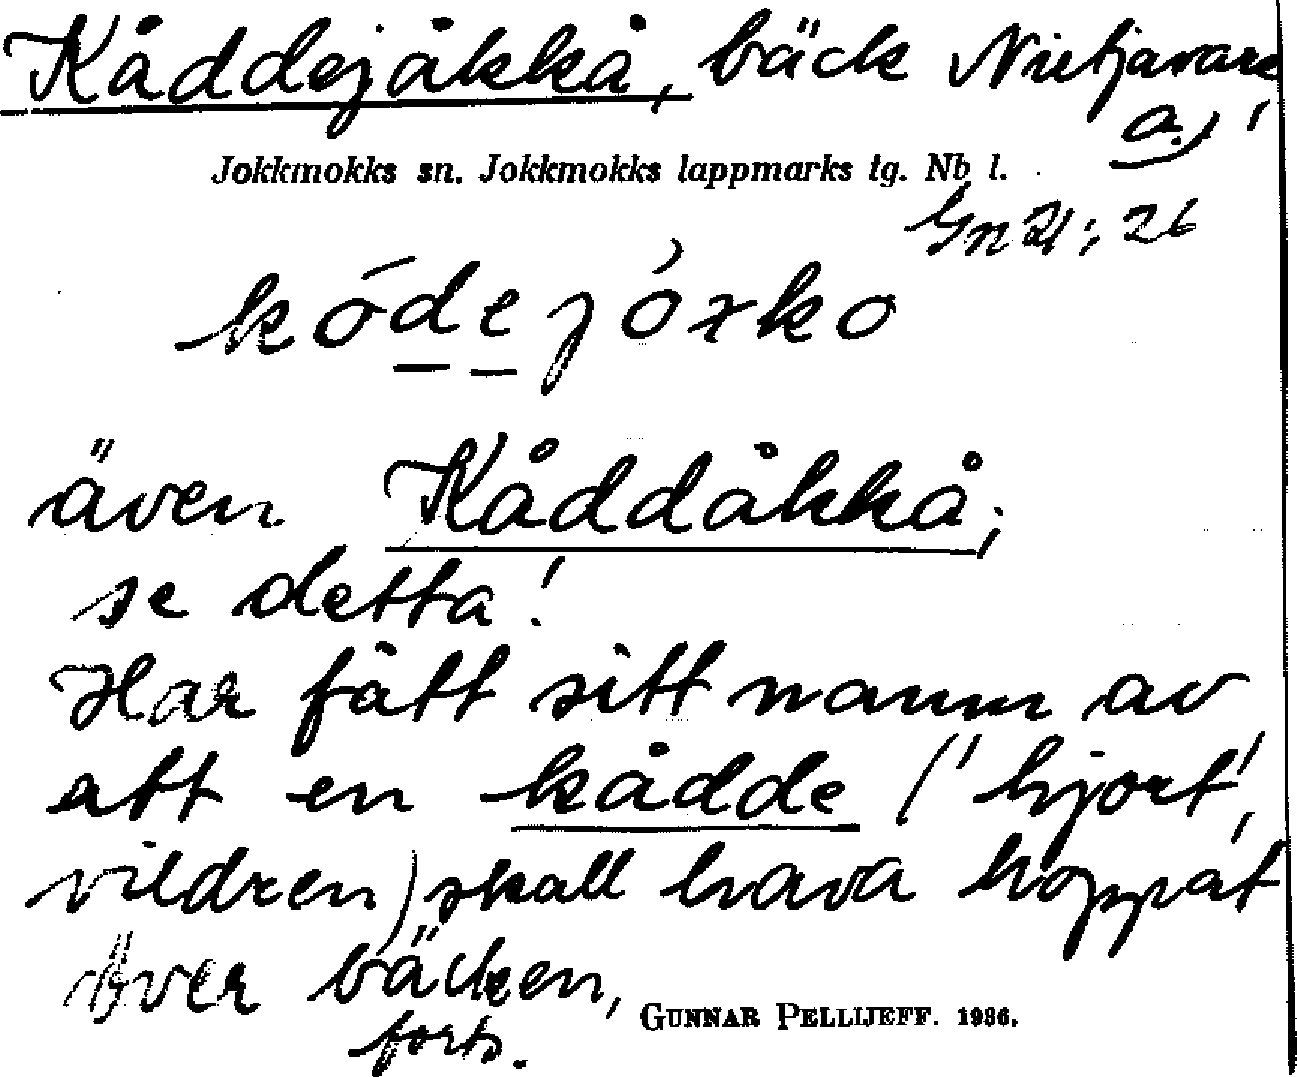 Kåddejåkkå, bäck Nietjavare
a.)
Jokkmokks sn. Jokkmokks lappmarks tg. Nb l.
Gn 21:26
kōdejóxko
även Kåddåkkå,
se detta!
Har fått sitt namn av
att en kådde ('hjort',
vildren) skall hava hoppat
över bäcken,
forts.
GUNNAR PELLIJEFF. 1936.